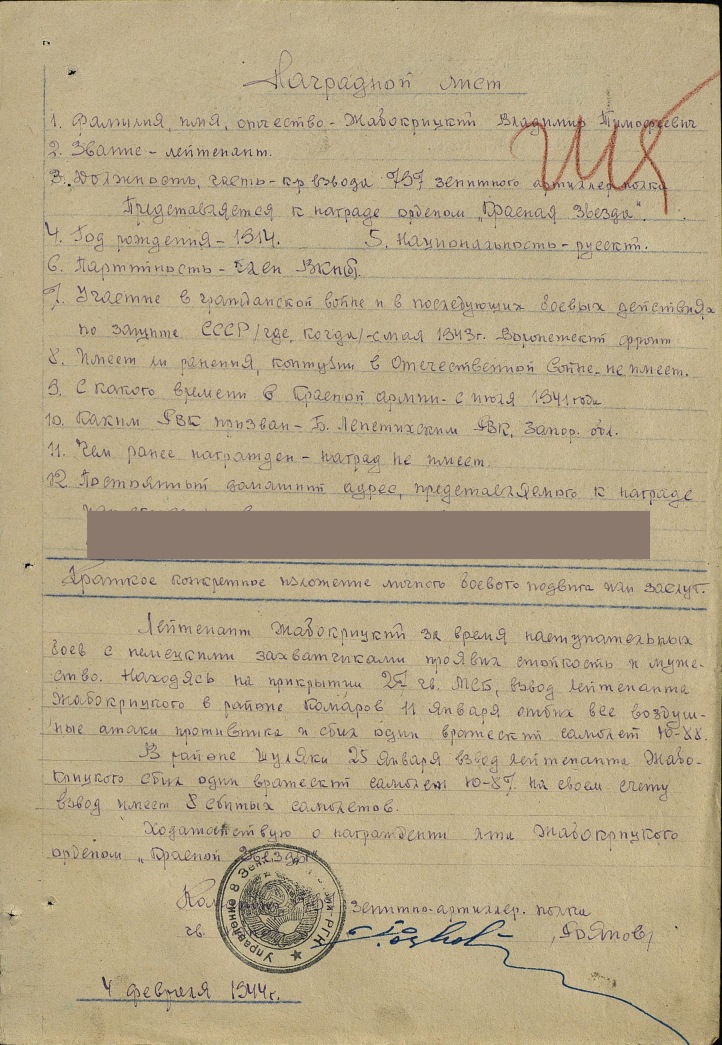 Наградной лист
1. Фамилия, имя, отчество - Жабокрицкий Владимир Тимофеевич
2. Звание - лейтенант.
3. Должность, часть - к-р взвода зенитного артиллер. полка
Представляется к награде орденом „Красная Звезда".
4. Год рождения - 1914. 5. Национальность - русский.
6. Партийность - член ВКП(б).
7. Участие в гражданской войне и в последующих боевых действиях
по защите СССР /где, когда/ - с мая 1943 г. Воронежский фронт
8. Имеет ли ранения, контузии в Отечественной войне - не имеет.
9. С какого времени в Красной армии - с июля 1941 года
10. Каким РВК призван - Б. Лепетихским РВК, Запор. обл.
11. Чем ранее награжден - наград не имеет.
12 Постоянный домашний адрес, представляемого к награде
Краткое конкретное изложение личного боевого подвига или заслуг.
Лейтенант Жабокрицкий за время наступательных
боев с немецкими захватчиками проявил стойкость и муже-
ство. Находясь на прикрытии гв. взвод лейтенанта
Жабокрицкого в районе Комаров 11 января отбил все воздуш-
ные атаки противника и сбил один вражеский самолет Ю-88.
В районе Шуляки 25 января взвод лейтенанта Жабо-
крицкого сбил один вражеский самолет Ю-87. На своем счету
взвод имеет 8 сбитых самолетов.
Ходатайствую о награждении л-та Жабокрицкого
орденом „Красной Звезды"
зенитно-артиллер. полка
гв. /Роянов/
Управление 8 РГК
4 февраля 1944 г.